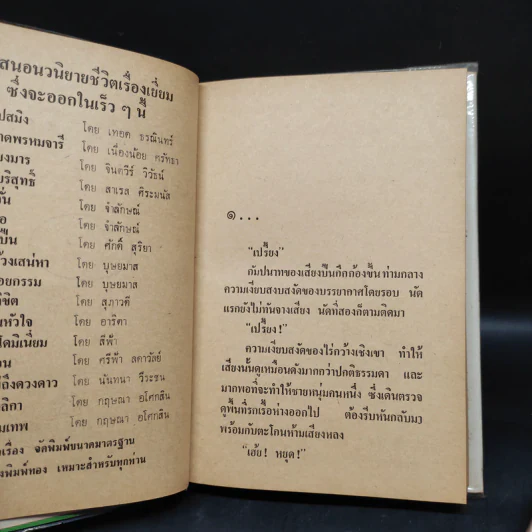 สนอนวนิยายชีวิตเรื่องเยี่ยม
ซึ่งจะออกในเร็ว ๆ นี้
ปสมิง โดย เทอด ธรณินทร์
าดพรหมจารี โดย เนื่องน้อย ศรัทธา
ยงมาร โดย จินตวีร์ วิวัธน์
บริสุทธิ์ โดย สาเรส ศิระมนัส
โดย จำลักษณ์
อ โดย จำลักษณ์
ปืน โดย ศักดิ์ สุริยา
ว้งเสน่หา โดย บุษยมาส
อยกรรม โดย บุษยมาส
ชิต โดย สุภาวดี
นหัวใจ โดย อาริตา
โดมิเนี่ยม โดย สีฟ้า
อน โดย ศรีฟ้า ลดาวัลย์
ปถึงดวงดาว โดย นันทนา วีระชน
ลิกา โดย กฤษณา อโศกสิน
มเทพ โดย กฤษณา อโศกสิน
เรื่อง จัดพิมพ์ขนาดมาตรฐาน
งพิมพ์ทอง เหมาะสำหรับทุกท่าน
๑...
"เปรี้ยง"
กัมปนาทของเสียงปืนกึกก้องขึ้น ท่ามกลาง
ความเงียบสงบสงัดของบรรยากาศโดยรอบ นัด
แรกยังไม่ทันจางเสียง นัดที่สองก็ตามติดมา
"เปรี้ยง!"
ความเงียบสงัดของไร่กว้างเชิงเขา ทำให้
เสียงนั้นดูเหมือนดังมากกว่าปกติธรรมดา และ
มากพอที่จะทำให้ชายหนุ่มคนหนึ่ง ซึ่งเดินตรวจ
ดูพื้นที่รกเรื้อห่างออกไป ต้องรีบหันกลับมา
พร้อมกับตะโกนห้ามเสียงหลง
"เฮ้ย! หยุด!"